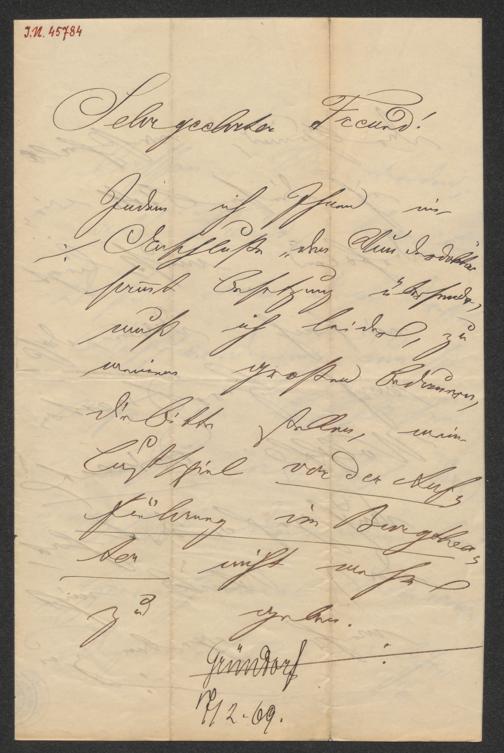 I.N. 45784
Sehr geehrter Freund!
Indem ich Ihnen im
Anschluße „das
sammt Besetzung übersende,
muß ich leider, zu
meinem großen Bedauern,
die Bitte stellen, mein
Lustspiel vor der Auf=
führung im Burgthea=
ter nicht mehr
zu geben.
Gründorf
/12.69.